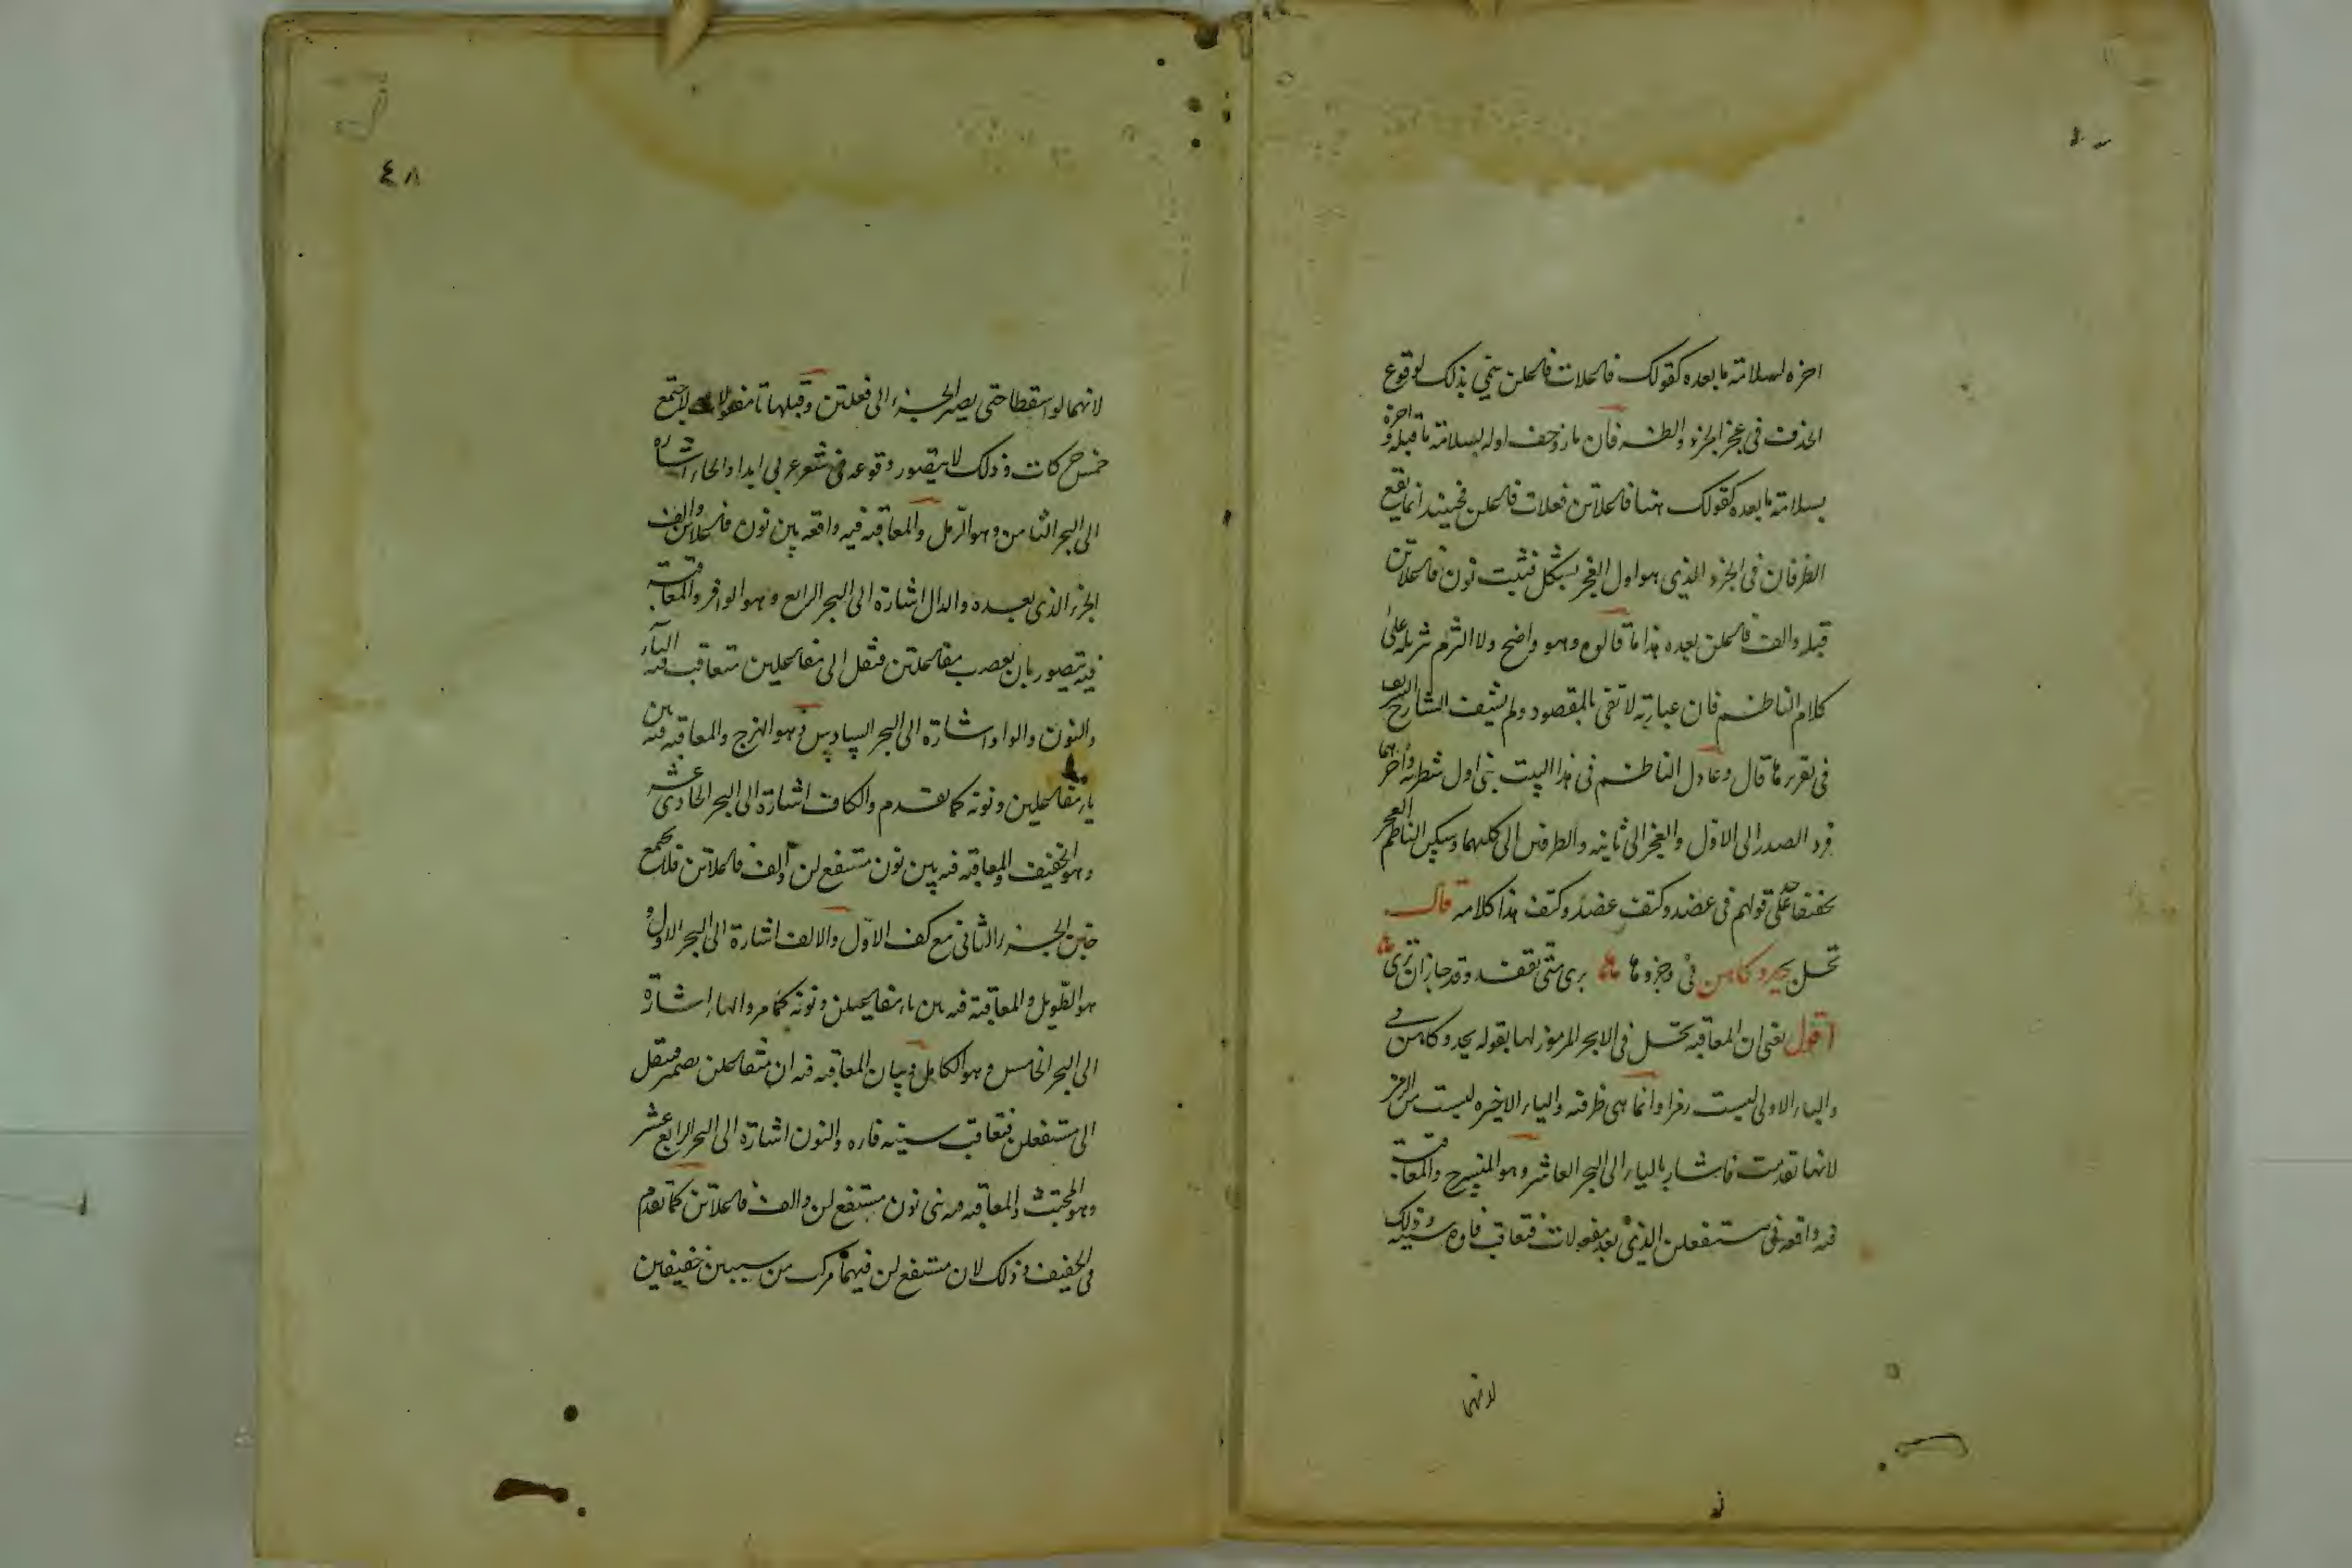 اخره لسلامة ما بعده كقولك فاعلات فاعلن سمي بذلك لوقوع
الحذف في عجز الجزء والطرفان ما زوحف اوله لسلامة ما قبله واخره
لسلامة ما بعده كقولك هنا فاعلاتن فعلات فاعلن فحينئذ انما يقع
الطرفان في الجزء الذي هو اول العجز بشكل فثبت نون فاعلاتن
قبله والف فاعلن بعده هذا ما قالوه وهو واضح ولا التزم تنزيله على
كلام الناظم فان عبارته لا تفي بالمقصود ولم يشف الشارح الشريف
في تقرير ما قال وعادل الناظم في هذا البيت بين اول شطريه واخرهما
فرد الصدر الى الاول والعجز الى ثانيه والطرفين الى كليهما وسكن الناظم العجز
تخفيفا على حد قولهم في عضد وكتف عضد وكتف هذا كلامه قال
تحل بيحدوكاهن في وجزوها بري متى تفقد وقد جاز ان تري
اقول يعني ان المعاقبة تحل في الابحر المرموز لها بقوله يحدوكاهن في
والباء الاولى ليست رمزا وانما هي ظرفية والياء الاخيره ليست من الرمز
لانها تقدمت فاشار بالياء الى البحر العاشر وهو المنسرح والمعاقبة
فيه واقعة في مستفعلن الذي بعد مفعولات فتعاقب فاؤه سينه وذلك
لانهما
٤٨
لانهما لو اسقطا حتى يصير الجزء الى فعلتن وقبلها تا مفعولات لاجتمع
خمس حركات وذلك لا يتصور وقوعه في شعر عربي ابدا والحاء اشارة
الى البحر الثامن وهو الرمل والمعاقبة فيه واقعة بين نون فاعلاتن والف
الجزء الذي بعده والدال اشارة الى البحر الرابع وهو الوافر والمعاقبة
فيه تتصور بان يعصب مفاعلتن فينقل الى مفاعيلن فتتعاقب فيه الياء
والنون والواو اشارة الى البحر السادس وهو الهزج والمعاقبة فيه بين
ياء مفاعيلن ونونه كما تقدم والكاف اشارة الى البحر الحادي عشر
وهو الخفيف والمعاقبة فيه بين نون مستفع لن والف فاعلاتن فلا يجتمع
خبن الجزء الثاني مع كف الاول والالف اشارة الى البحر الاول و
هو الطويل والمعاقبة فيه بين ياء مفاعيلن ونونه كما مر والهاء اشارة
الى البحر الخامس وهو الكامل وبيان المعاقبة فيه ان متفاعلن يضمر فينقل
الى مستفعلن فتعاقب سينه فاءه والنون اشارة الى البحر الرابع عشر
وهو المجتث والمعاقبة فيه بين نون مستفع لن والف فاعلاتن كما تقدم
في الخفيف وذلك لان مستفع لن فيهما مركب من سببين خفيفين